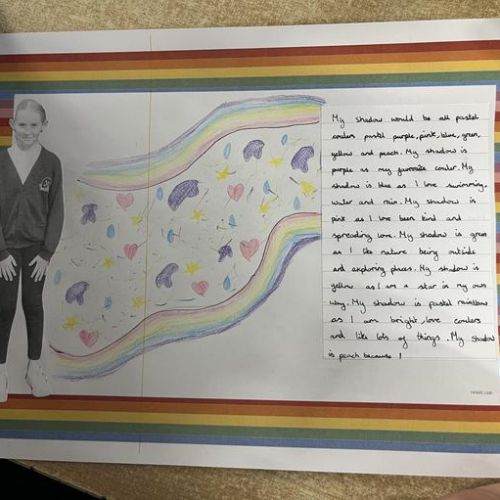 My shadow would be all pastel
coulers pastel purple, pink, blue, green,
yellow and peach. My shadow is
purple as my favourate couler. My
shadow is blue as I love swimming,
water and rain. My shadow is
pink as I love been kind and
spreading love. My shadow is green
as I like nature being outside
and exploring places. My shadow is
yellow as I am a star in my own
way. My shadow is pastel rainbow
as I am bright, love coulers
and like lots of things. My shadow
is peach because I